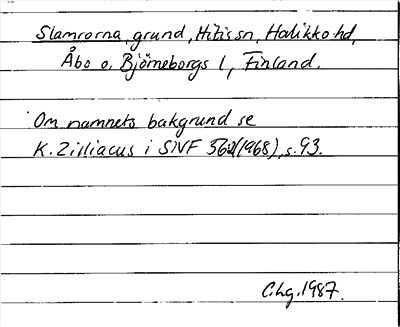 Slamrorna, grund, Hitis sn, Halikko hd,
Åbo o. Björneborgs l, Finland.
Om namnets bakgrund se
K. Zilliacus i SNF 56:2(1968), s. 93.
C.hg. 1987.